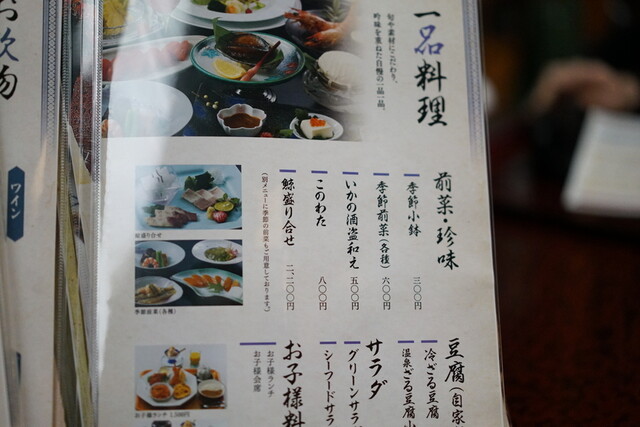 お飲物
ワイン
一品料理
旬や素材にこだわり、
吟味を重ねた自慢の一品一品。
前菜・珍味
季節小鉢 三〇〇円
季節前菜(各種) 六〇〇円
いかの酒盗和え 五〇〇円
このわた 八〇〇円
鯨盛り合せ 二、二〇〇円
(別メニューに季節の前菜もご用意しております。)
鯨盛り合せ
季節前菜(各種)
豆腐(自家
冷ざる豆腐
温泉ざる豆腐
サラダ
グリーンサラ
シーフードサラ
お子様料
お子様ランチ
お子様会席
お子様ランチ 1,500円